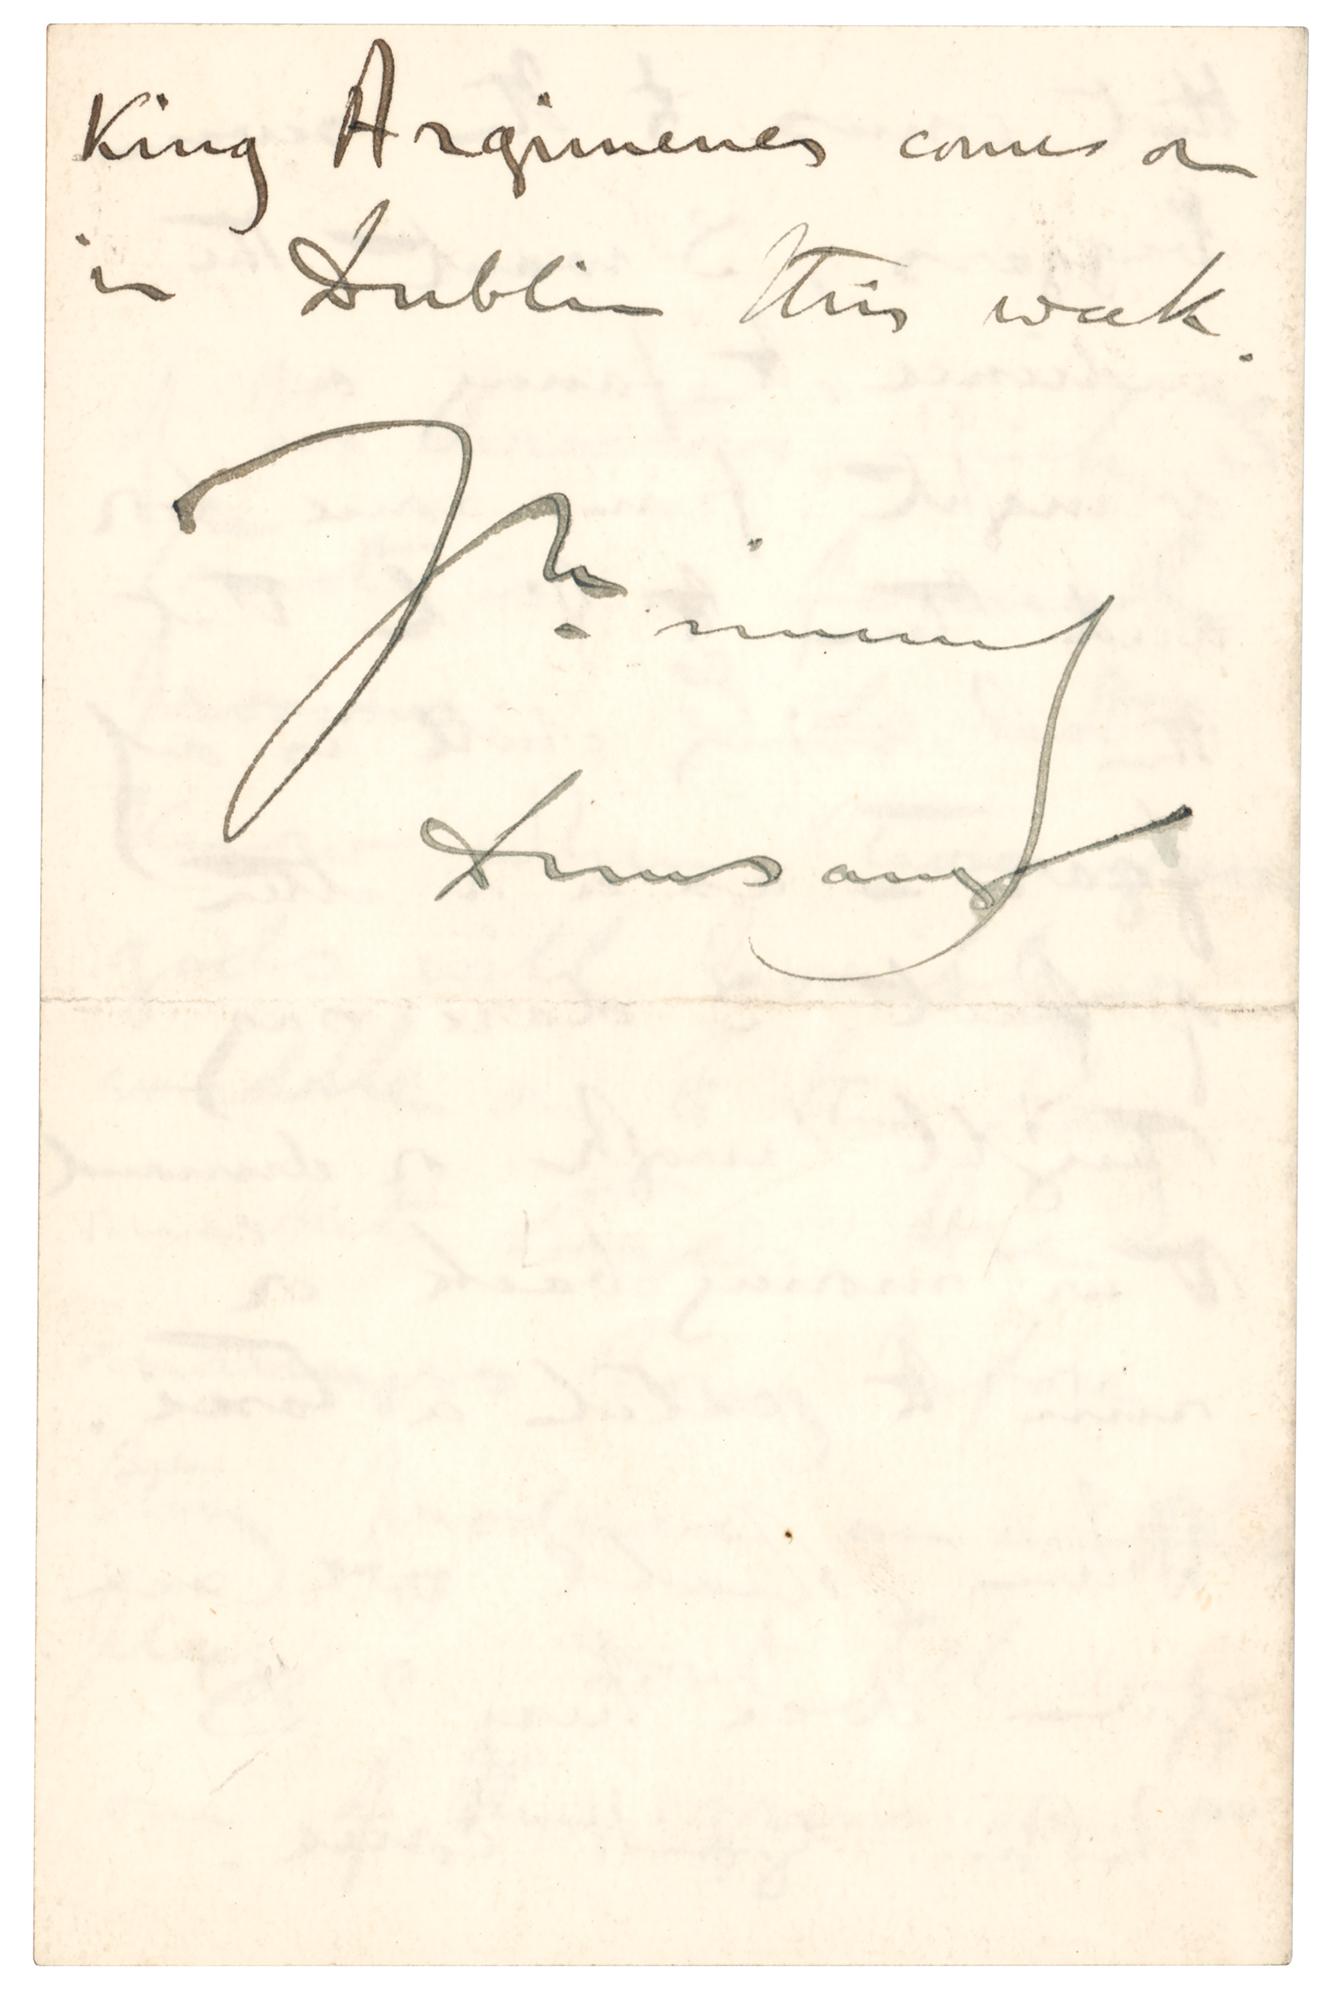 King Argimenes comes on
in Dublin this week.
Yrs. sincerely
Dunsany